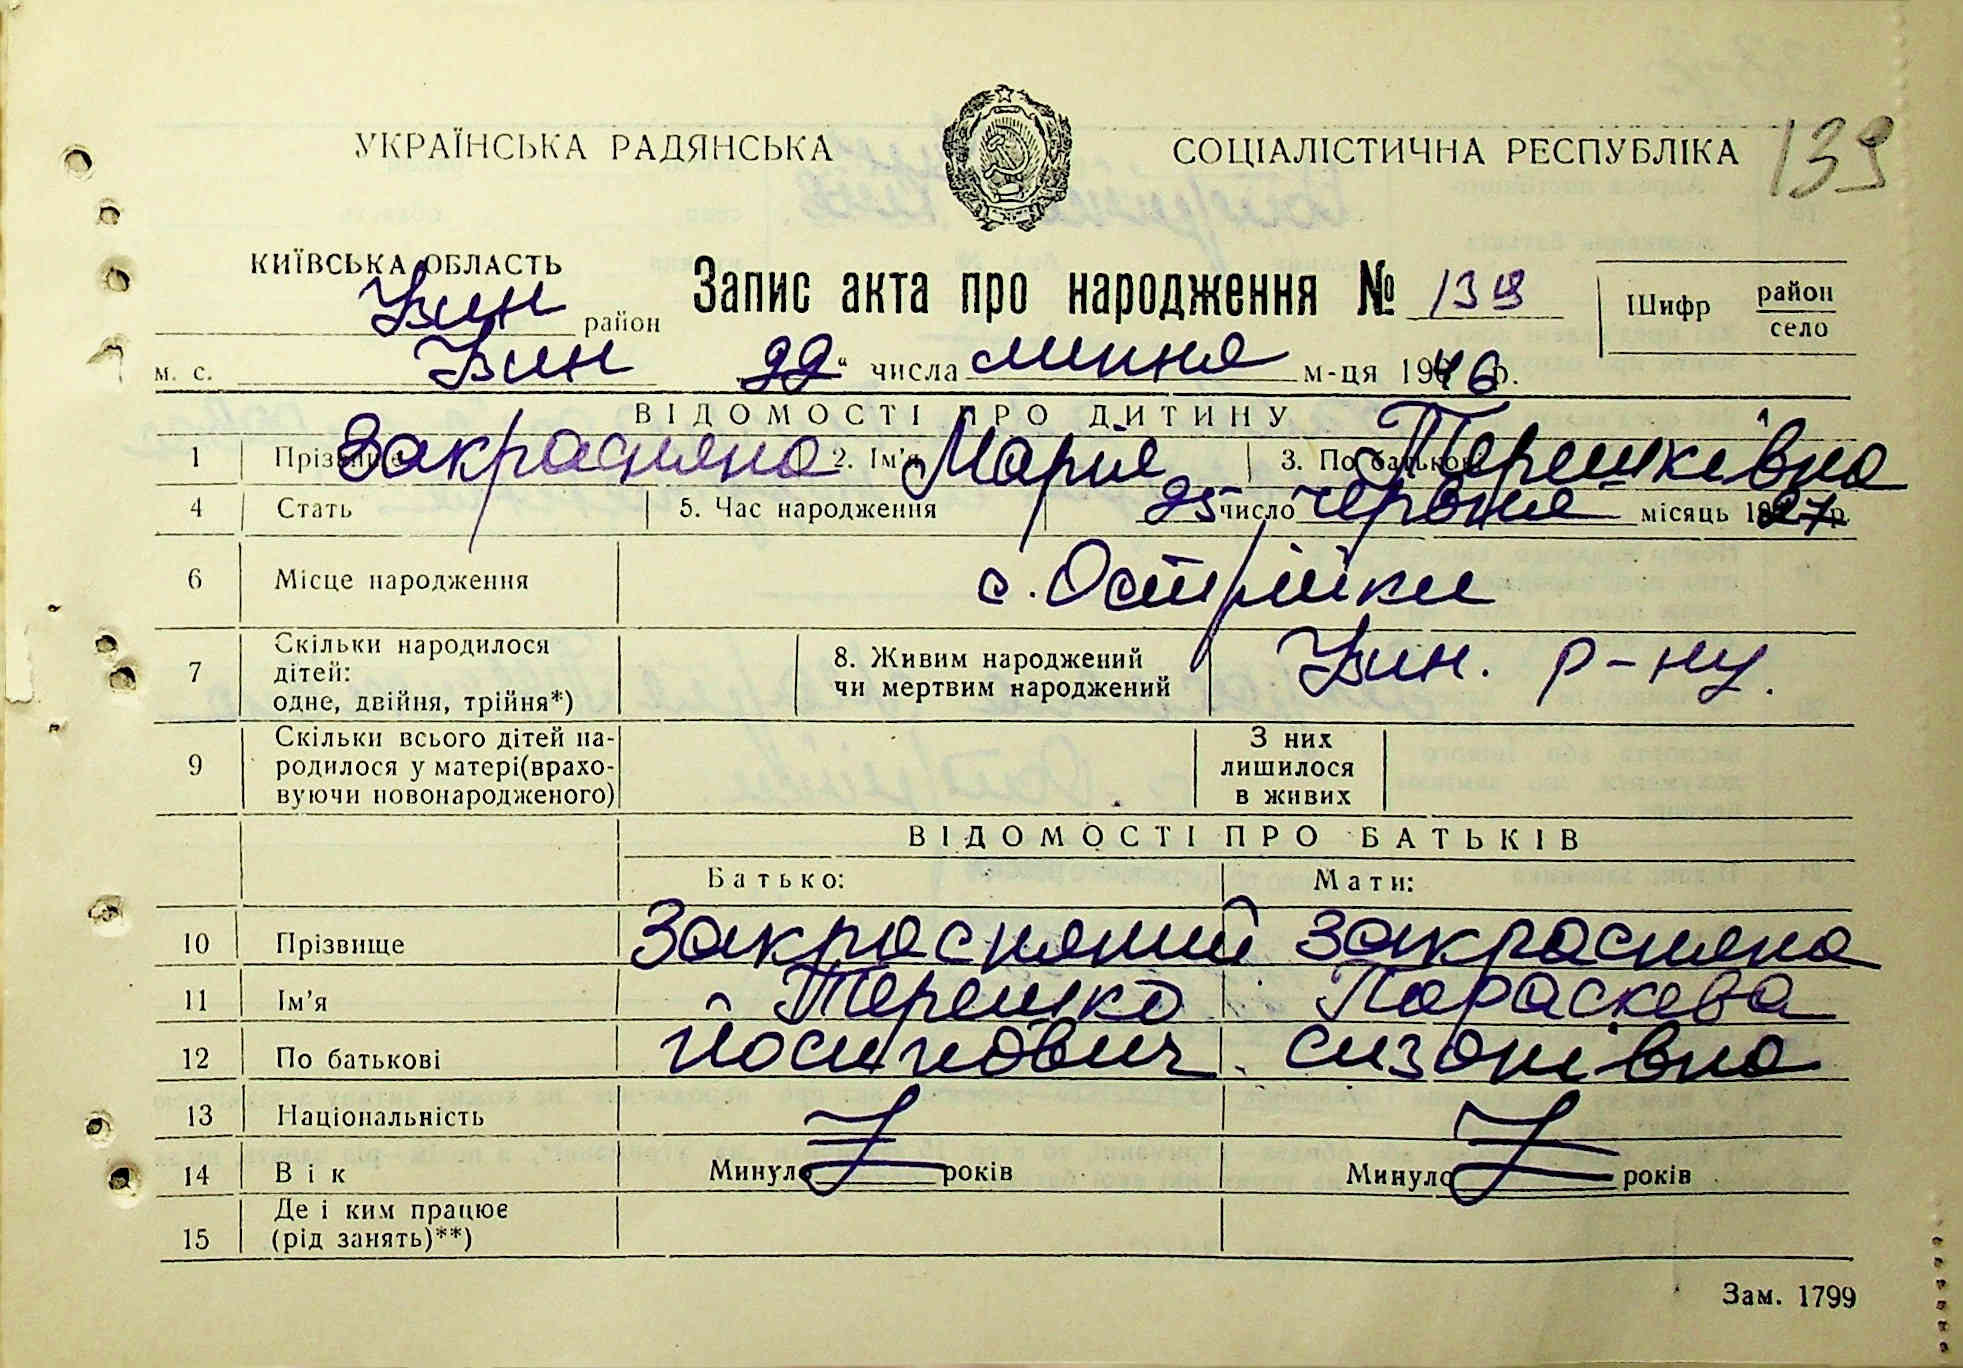 УКРАЇНСЬКА РАДЯНСЬКА СОЦІАЛІСТИЧНА РЕСПУБЛІКА 139
КИЇВСЬКА ОБЛАСТЬ
Узин район
Запис акта про народження № 139
Шифр район село
м. с. Узин 22 числа липня м-ця 1946 р.
ВІДОМОСТІ ПРО ДИТИНУ
1 Прізвище Закрасняна 2. Ім'я Марія 3. По батькові Терешківна
4 Стать 5. Час народження 25 число червня місяць 1927 р.
6 Місце народження с. Острійки
7 Скільки народилося дітей: одне, двійня, трійня*) 8. Живим народжений чи мертвим народжений Узин. р-ну.
9 Скільки всього дітей народилося у матері(враховуючи новонародженого) З них лишилося в живих
ВІДОМОСТІ ПРО БАТЬКІВ
Батько: Мати:
10 Прізвище Закрасняний Закрасняна
11 Ім'я Терешко Параскева
12 По батькові Йосипович Сизонівна
13 Національність
14 Вік Минуло років Минуло років
15 Де і ким працює (рід занять)**)
Зам. 1799